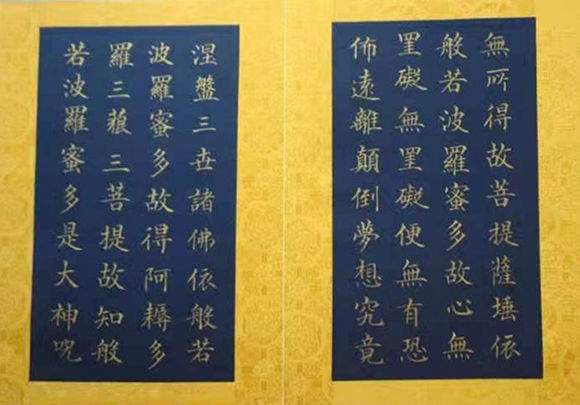 無所得故菩提薩埵依
般若波羅蜜多故心無
罣礙無罣礙便無有恐
怖遠離顛倒夢想究竟
涅盤三世諸佛依般若
波羅蜜多故得阿耨多
羅三藐三菩提故知般
若波羅蜜多是大神呪